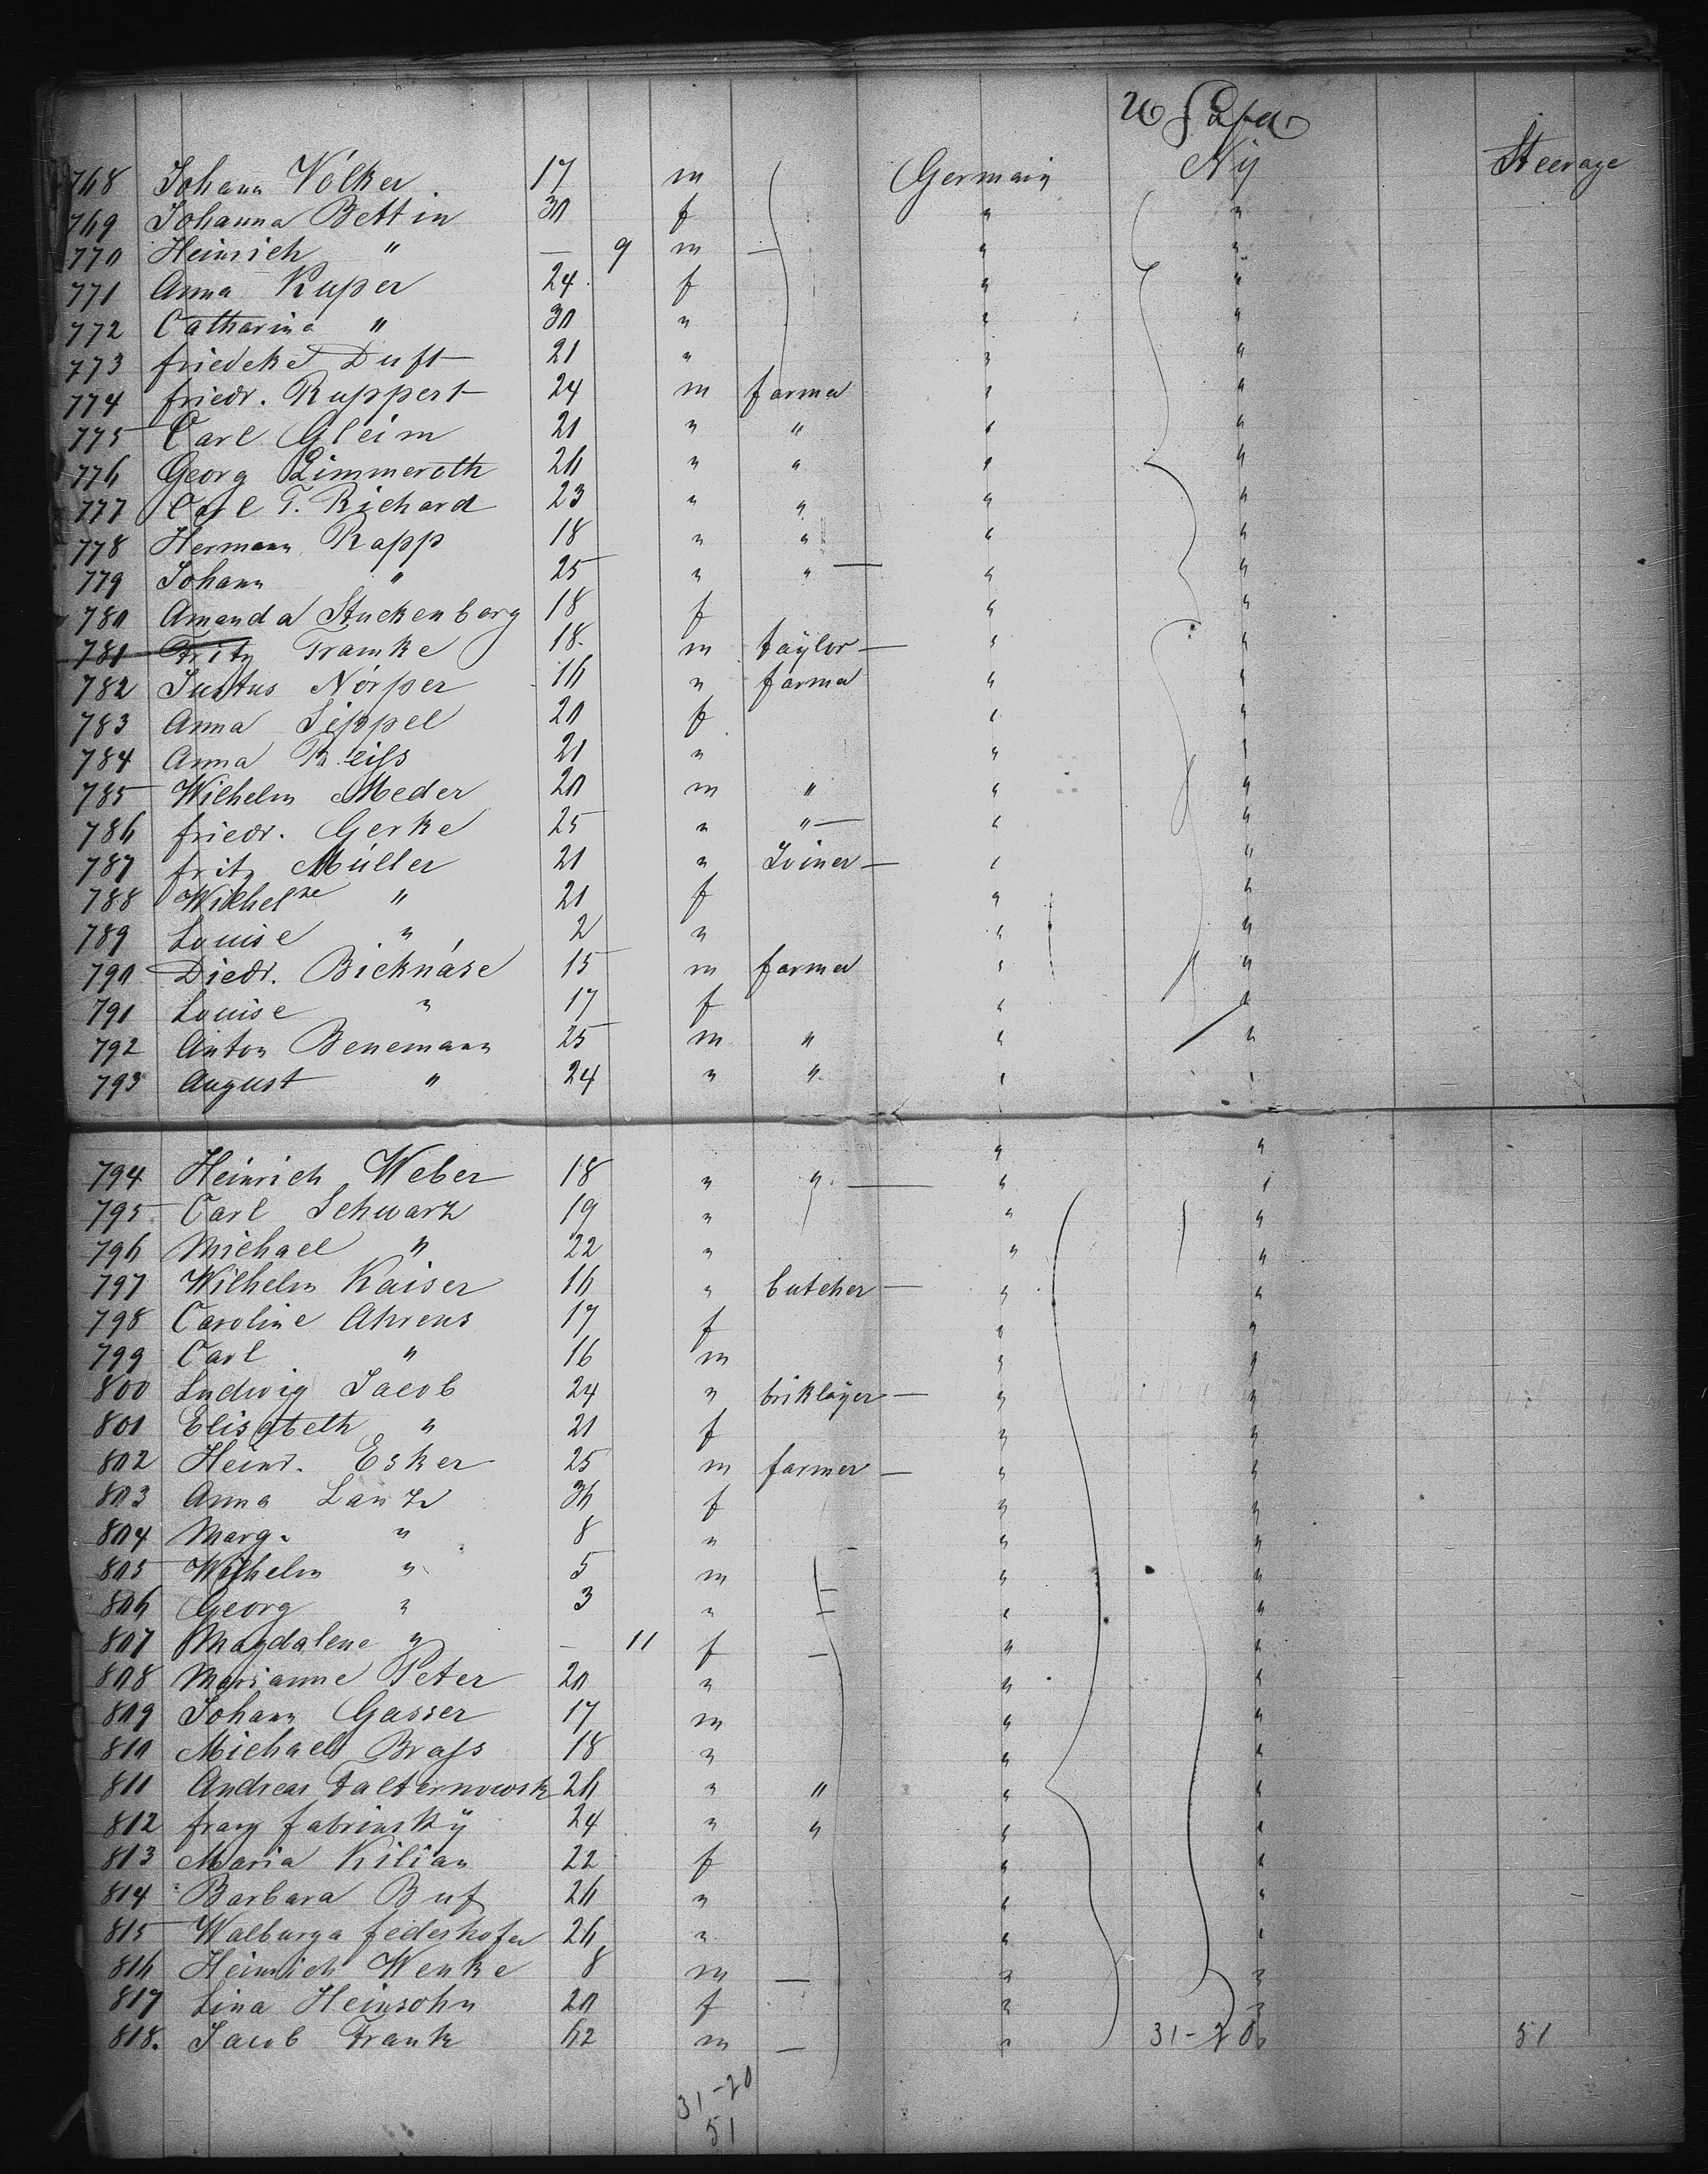 768 Johann Völker 17 m Germany NY Steerage
769 Johanna Bettin 30 f " "
770 Heinrich " — 9 m — " "
771 Anna Kuper 24 f " "
772 Catharina " 30 " " "
773 friedeke Duft 21 " " "
774 friedr. Ruppert 24 m farmer " "
775 Carl Gleim 21 " " " "
776 Georg Zimmeroth 26 " " " "
777 Carl T. Richard 23 " " " "
778 Hermann Rapp 18 " " " "
779 Johann " 25 " " — " "
780 Amanda Stuckenborg 18 f " "
781 Fritz Tramke 18 m taylor — " "
782 Justus Nörper 16 " farmer " "
783 Anna Sippel 20 f " "
784 Anna Reiss 21 " " "
785 Wilhelm Meder 20 m " " "
786 friedr. Gerke 25 " " — " "
787 fritz Müller 21 " Joiner — " "
788 Wilhelne " 21 f " "
789 Louise " 2 " " "
790 Diedr. Bicknäse 15 m farmer " "
791 Louise " 17 f " "
792 Anton Benemann 25 m " " "
793 August " 24 " " " "
" "
794 Heinrich Weber 18 " " — " "
795 Carl Schwarz 19 " " "
796 Michael " 22 " " "
797 Wilhelm Kaiser 16 " butcher — " "
798 Caroline Ahrens 17 f " "
799 Carl " 16 m " "
800 Ludwig Jacob 24 " brikläyer — " "
801 Elisabeth " 21 f " "
802 Heinr. Esker 25 m farmer — " "
803 Anna Lantz 36 f " "
804 Marg. " 8 " " "
805 Wilhelm " 5 m " "
806 Georg " 3 " — " "
807 Magdalene " — 11 f — " "
808 Marianne Peter 20 " " "
809 Johann Gasser 17 m " "
810 Michael Brass 18 " " "
811 Andreas 26 " " " "
812 franz fabrinsky 24 " " " "
813 Maria Kilian 22 f " "
814 Barbara Buf 26 " " "
815 Walburga federhofer 26 " " "
816 Heinrich Wenke 8 m — " "
817 Lina Heinsohn 20 f " "
818. Jacob Frank 62 m — " 31-20 51
31-20
51